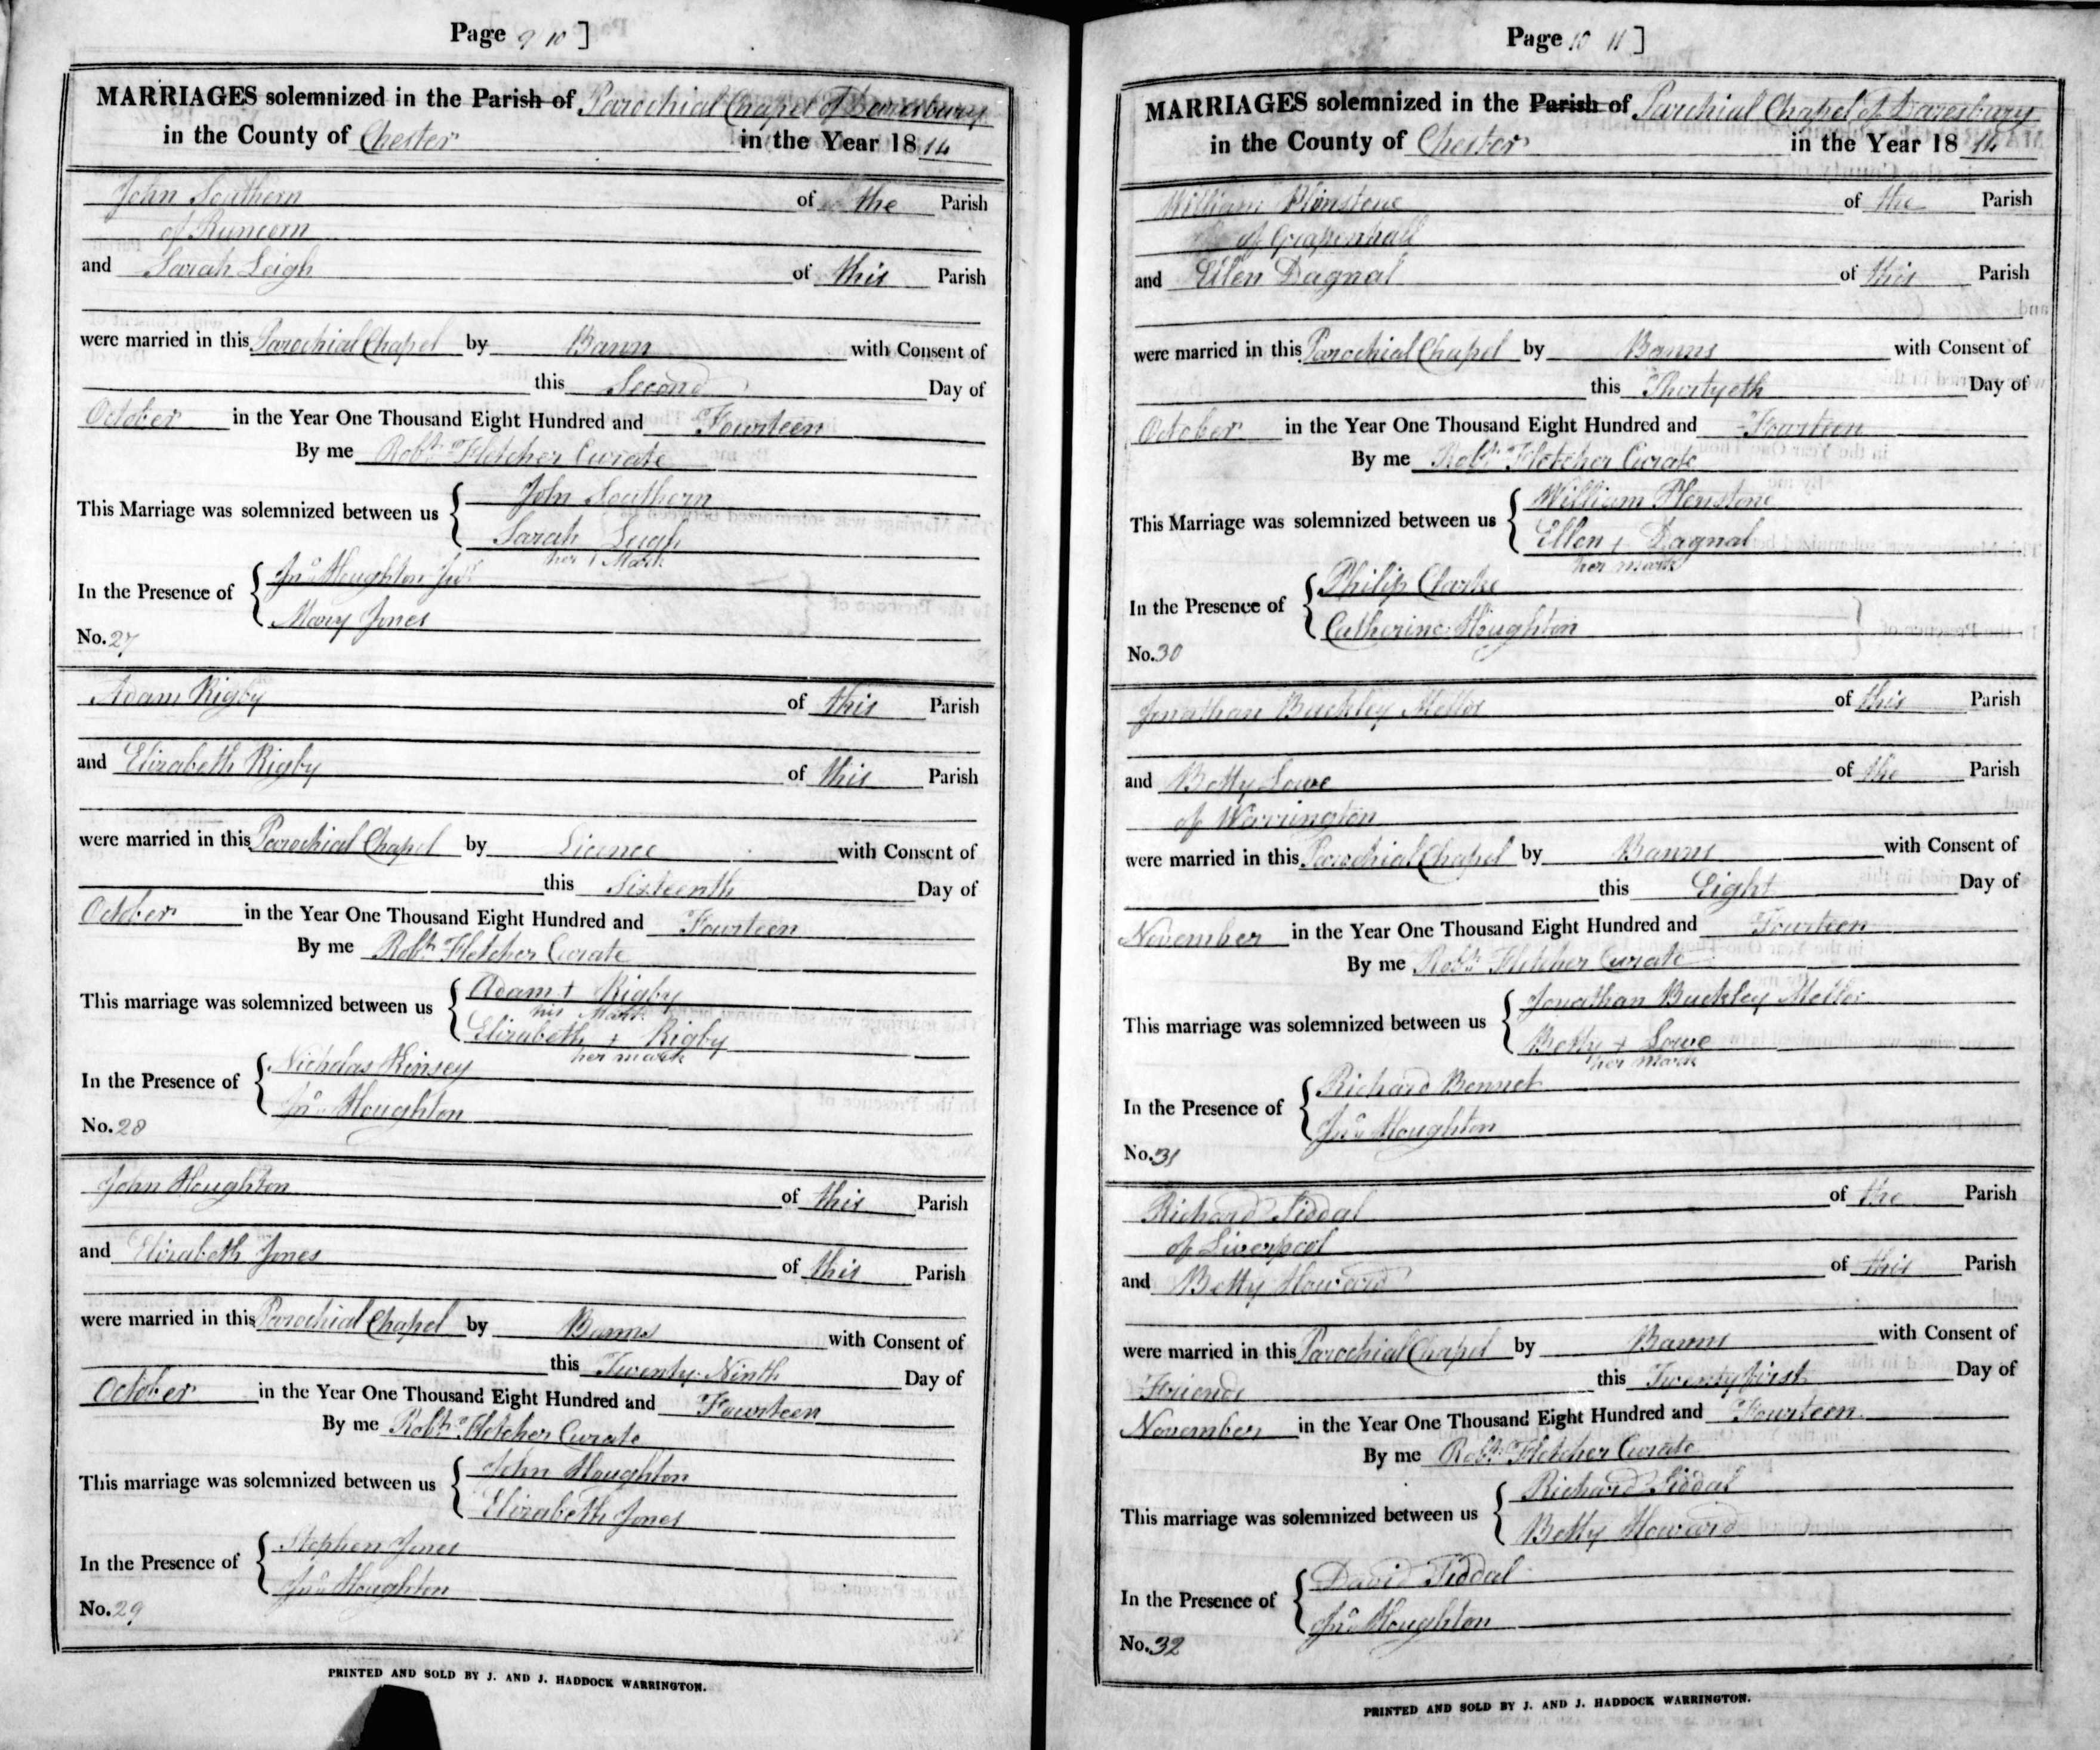 Page 9 10 ]
MARRIAGES solemnized in the Parish of Parochial Chapel of Daresbury
in the County of Chester in the Year 1814
John Southern of the Parish
of Runcorn
and Sarah Leigh of this Parish
were married in this Parochial Chapel by Bann with Consent of
this Second Day of
October in the Year One Thousand Eight Hundred and Fourteen
By me Robt. Fletcher Curate
This Marriage was solemnized between us { John Southern
Sarah Leigh
her + Mark
In the Presence of { Jno Houghton Junr
Mary Jones
No. 27
Adam Rigby of this Parish
and Elizabeth Rigby of this Parish
were married in this Parochial Chapel by Licence with Consent of
this Sixteenth Day of
October in the Year One Thousand Eight Hundred and Fourteen
By me Robt. Fletcher Curate
This marriage was solemnized between us { Adam + Rigby
his Mark
Elizabeth + Rigby
her mark
In the Presence of { Nicholas Kinsey
Jno Houghton
No. 28
John Houghton of this Parish
and Elizabeth Jones of this Parish
were married in this Parochial Chapel by Banns with Consent of
this Twenty Ninth Day of
October in the Year One Thousand Eight Hundred and Fourteen
By me Robt. Fletcher Curate
This marriage was solemnized between us { John Houghton
Elizabeth Jones
In the Presence of { Stephen Jones
Jno Houghton
No. 29
PRINTED AND SOLD BY J. AND J. HADDOCK WARRINGTON.
Page 10 11 ]
MARRIAGES solemnized in the Parish of Parochial Chapel of Daresbury
in the County of Chester in the Year 1814
William Plinstone of the Parish
of Grapenhall
and Ellen Dagnal of this Parish
were married in this Parochial Chapel by Banns with Consent of
this Thirtyeth Day of
October in the Year One Thousand Eight Hundred and Fourteen
By me Robt. Fletcher Curate
This Marriage was solemnized between us { William Plenstone
Ellen + Dagnal
her mark
In the Presence of { Philip Clarke
Catherine Houghton
No. 30
Jonathan Buckley Mellor of this Parish
and Betty Lowe of the Parish
of Warrington
were married in this Parochial Chapel by Banns with Consent of
this Eight Day of
November in the Year One Thousand Eight Hundred and Fourteen
By me Robt. Fletcher Curate
This marriage was solemnized between us { Jonathan Buckley Mellor
Betty + Lowe
her Mark
In the Presence of { Richard Bennet
Jno Houghton
No. 31
Richard Siddal of the Parish
of Liverpool
and Betty Howard of this Parish
were married in this Parochial Chapel by Banns with Consent of
Friends this Twenty first Day of
November in the Year One Thousand Eight Hundred and Fourteen
By me Robt. Fletcher Curate
This marriage was solemnized between us { Richard Siddal
Betty Howard
In the Presence of { David Siddal
Jno Houghton
No. 32
PRINTED AND SOLD BY J. AND J. HADDOCK WARRINGTON.